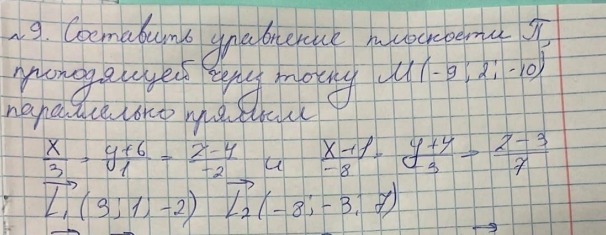 №9. Составить уравнение плоскости П,
проходящей через точку М(-9; 2; -10)
параллельно прямым
x/3 = y+6/1 = z-4/-2 и x+1/-8 = y+4/-3 = z-3/7
L₁(3; 1; -2) L₂(-8; -3; 7)